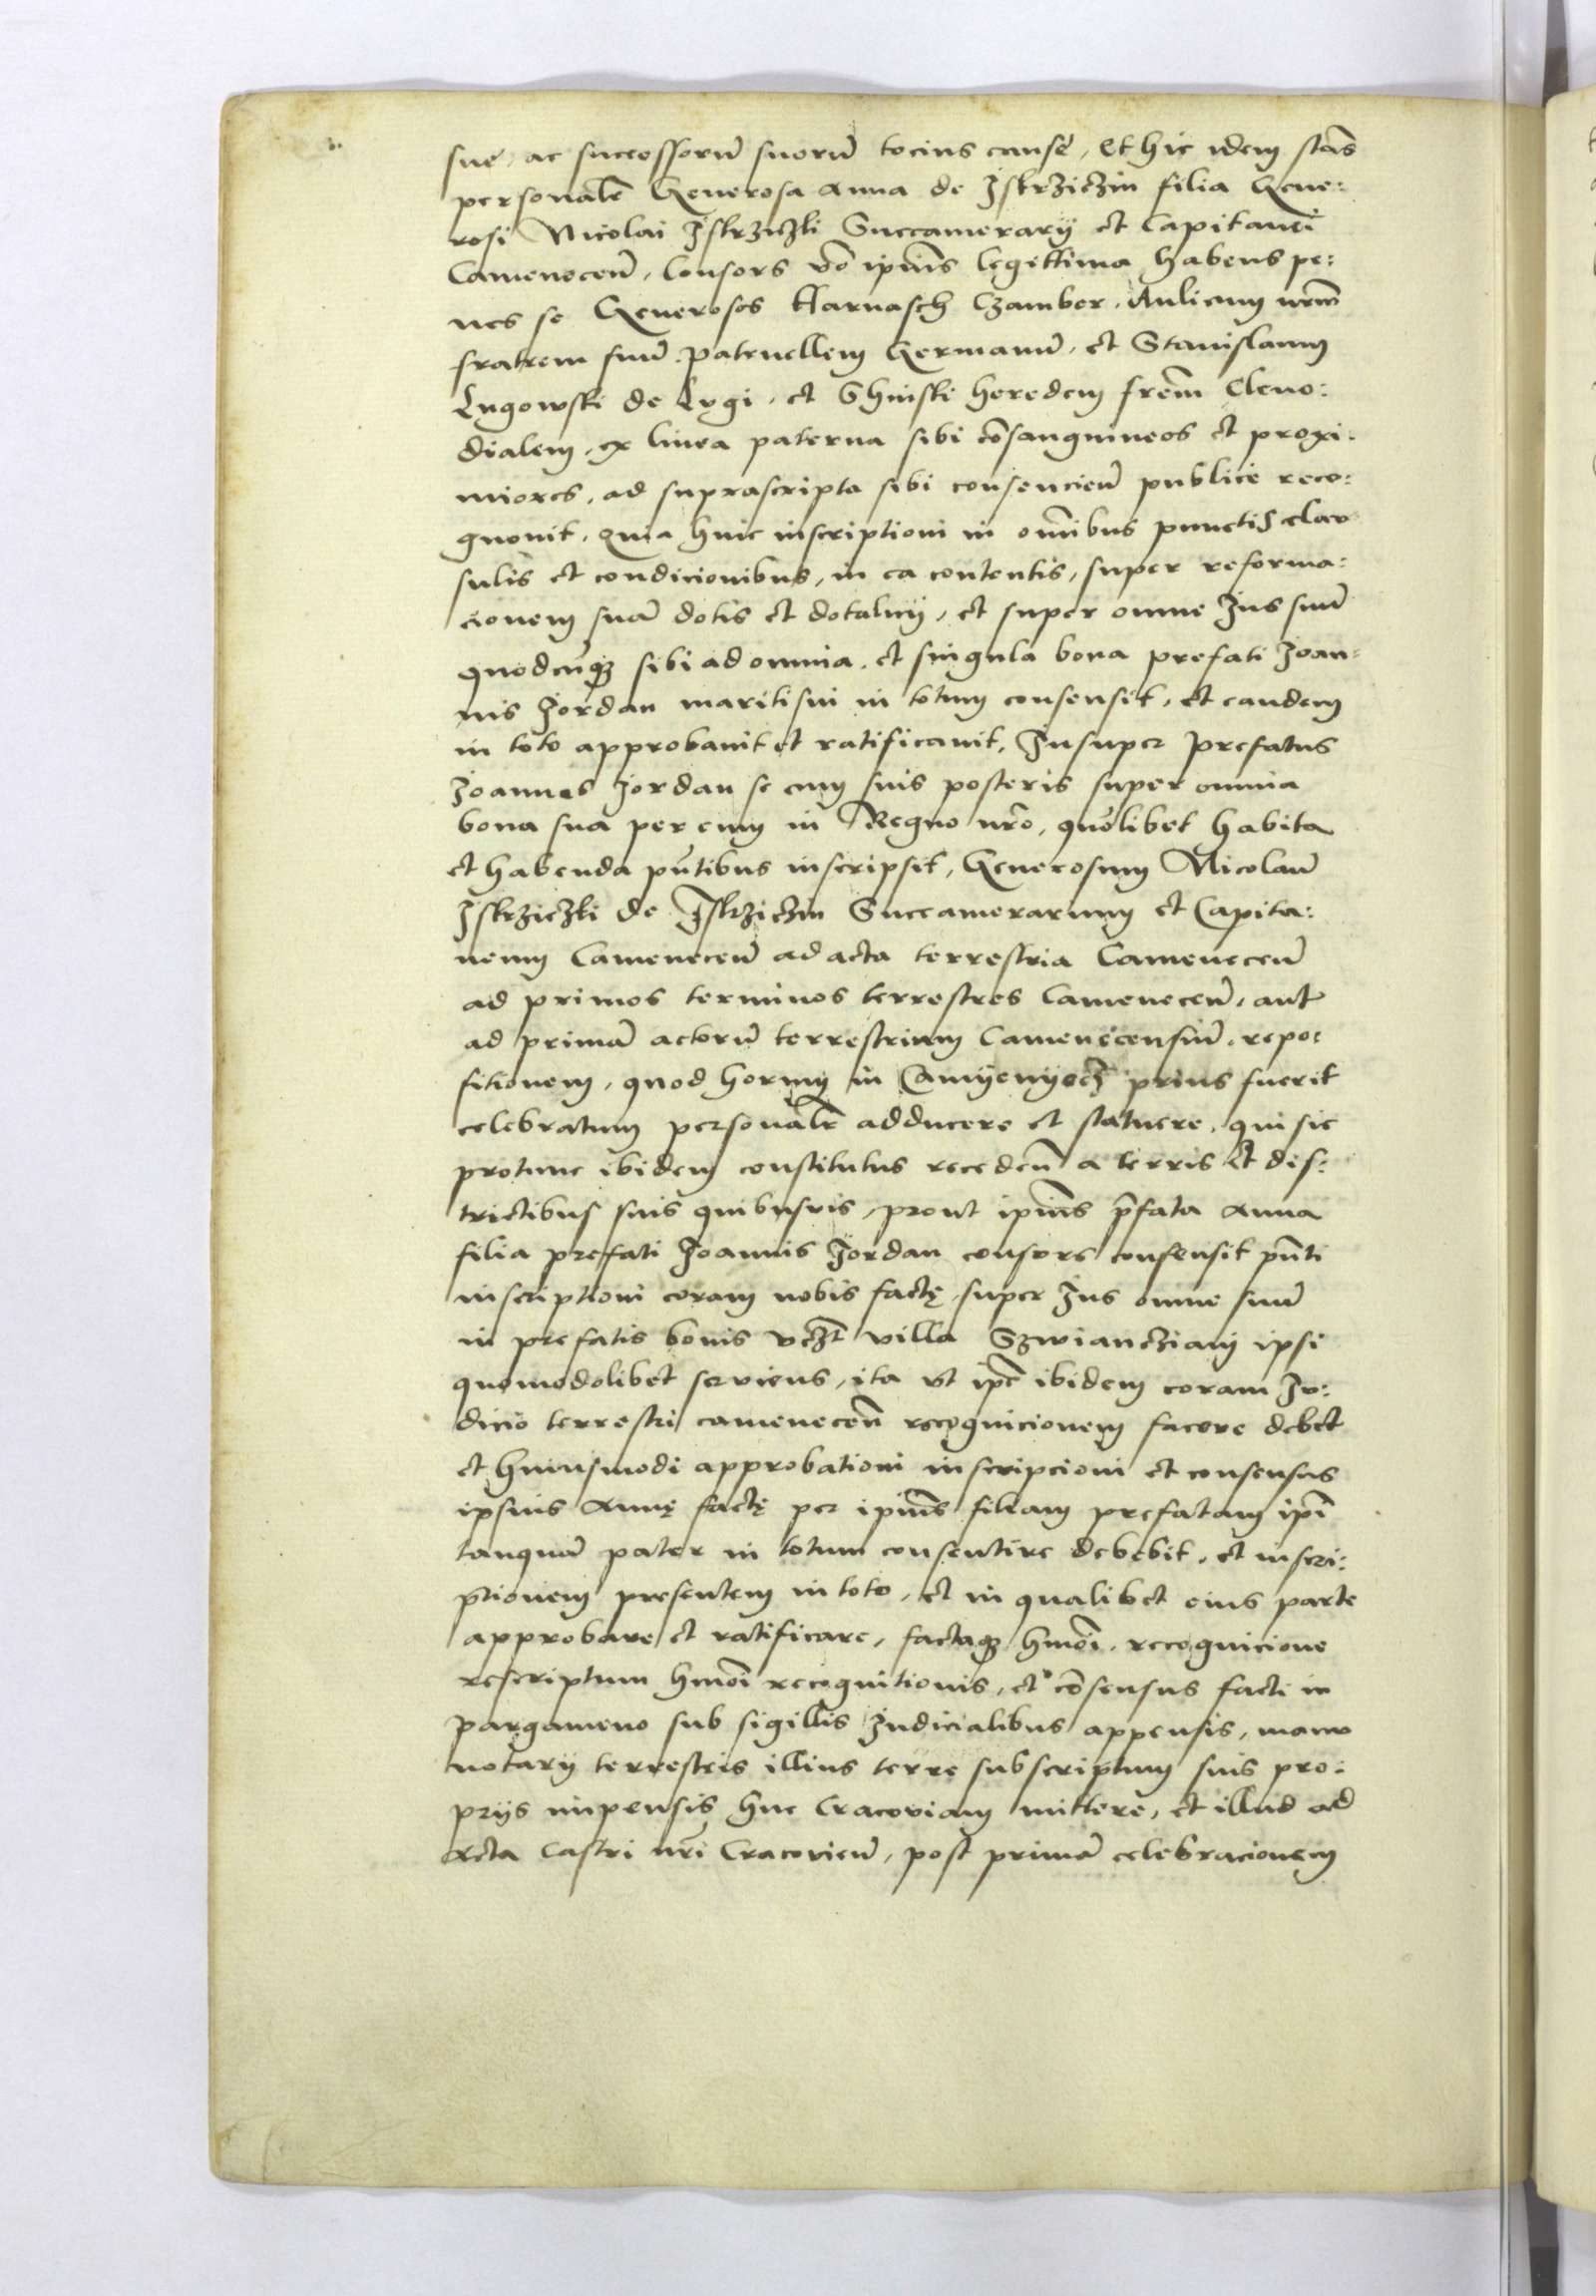 sue, ac successorū suorū tocius cause, Et hic idem stās
personalr̄ Generosa Anna de Iskrziczin filia Gene:
rosi Nicolai Iskrziczki Succamerarij et Capitanei
Camenecen̄, Consors v̄o ipiūs legettima habens pe:
nes se Generosos Harnasch Czambor, Aulicum nr̄m
fratrem suū patruellem Germanū, et Stanislaum
Lugowski de Lugi, et Ghniski heredem frēm Cleno:
dialem, ex linea paterna sibi cōsanguineos et proxi:
miores, ad suprascripta sibi consencien̄ publice reco:
gnouit, quia huic inscriptioni in om̄ibus punctis clau
sulis et condicionibus, in ea contentis, super reforma:
cionem suā dotis et dotalicij, et super omne Ius suū
quodcūqꝫ sibi ad omnia, et singula bona prefati Ioan:
nis Iordan mariti sui in totum consensit, et eandem
in toto approbauit et ratificauit, Insuper prefatus
Ioannes Iordan se cum suis posteris super omnia
bona sua per eum in Regno nr̄o, quolibet habita
et habenda pn̄tibus inscripsit, Generosum Nicolaū
Iskrziczki de Iskrziczin Succamerarium et Capita:
neum Camenecen̄ ad acta terrestria Camenecen̄
ad primos terminos terrestres Camenecen̄, aut
ad primā actorū terrestrium Camenecensiū, repo:
sitionem, quod horum in Camyenyecz prius fuerit
celebratum personalr̄ adducere et statuere, qui sic
protunc ibidem constitutus receden̄ a terris et dis:
trictibus suis quibusuis, prout ipiūs p̄fata Anna
filia prefati Ioannis Iordan consors consensit pn̄ti
inscriptioni coram nobis factę, super Ius omne suū
in prefatis bonis vcꝫt villa Szwiancziani ipsi
quomodolibet seruiens, ita vt ip̄e ibidem coram Iu:
dicio terrestri camenecen̄ recognicionem facere debet
et huiusmodi approbationi inscripcioni et consensus
ipsius Annę factę per ipiūs filiam prefatam ip̄i
tanquā pater in totum consentire debebit, et inscri:
ptionem presentem in toto, et in qualibet eius parte
approbare et ratificare, factaqꝫ hmōi recognicione
rescriptum hmōi recognitionis, et cōsensus facti in
pargameno sub sigillis Iudicialibus appensis, manu
notarij terrestris illius terre subscriptum suis pro:
prijs impensis huc Cracouiam mittere, et illud ad
Acta Castri nr̄i Cracouien̄, post primā celebracionem